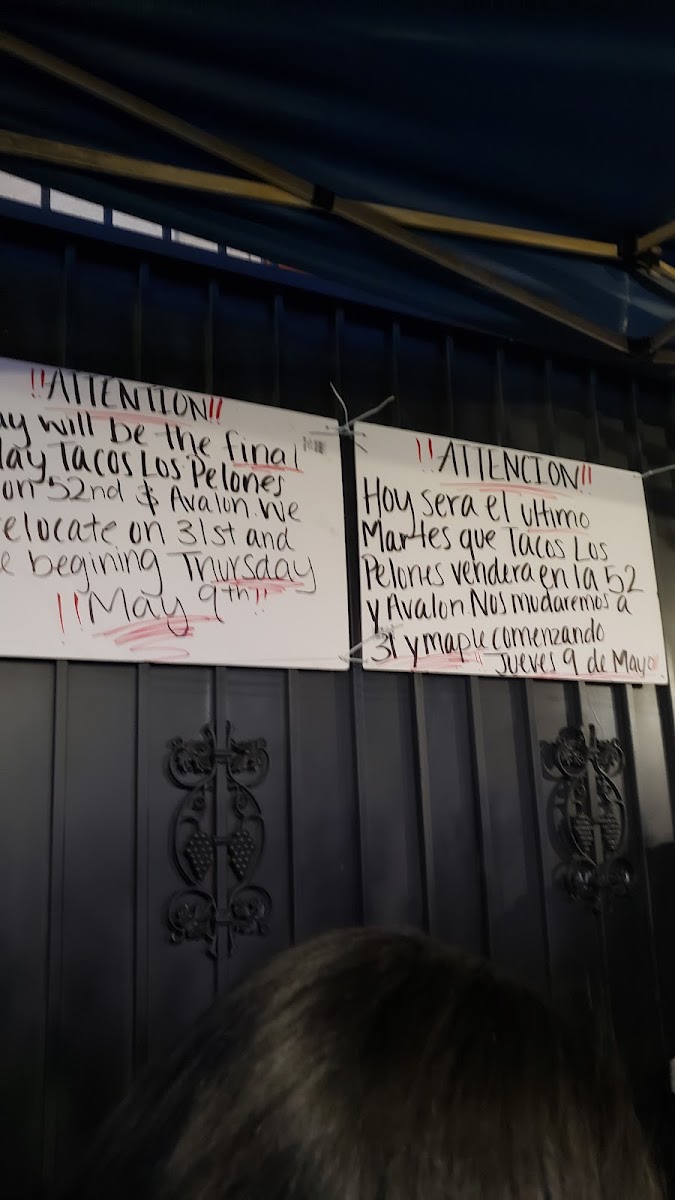 !!ATTENTION!!
will be the final
Tacos Los Pelones
on 52nd & Avalon. We
relocate on 31st and
begining Thursday
!!May 9th!!
!!ATTENCION!!
Hoy sera el ultimo
Martes que Tacos Los
Pelones vendera en la 52
y Avalon Nos mudaremos a
31 y maple comenzando
Jueves 9 de Mayo!!